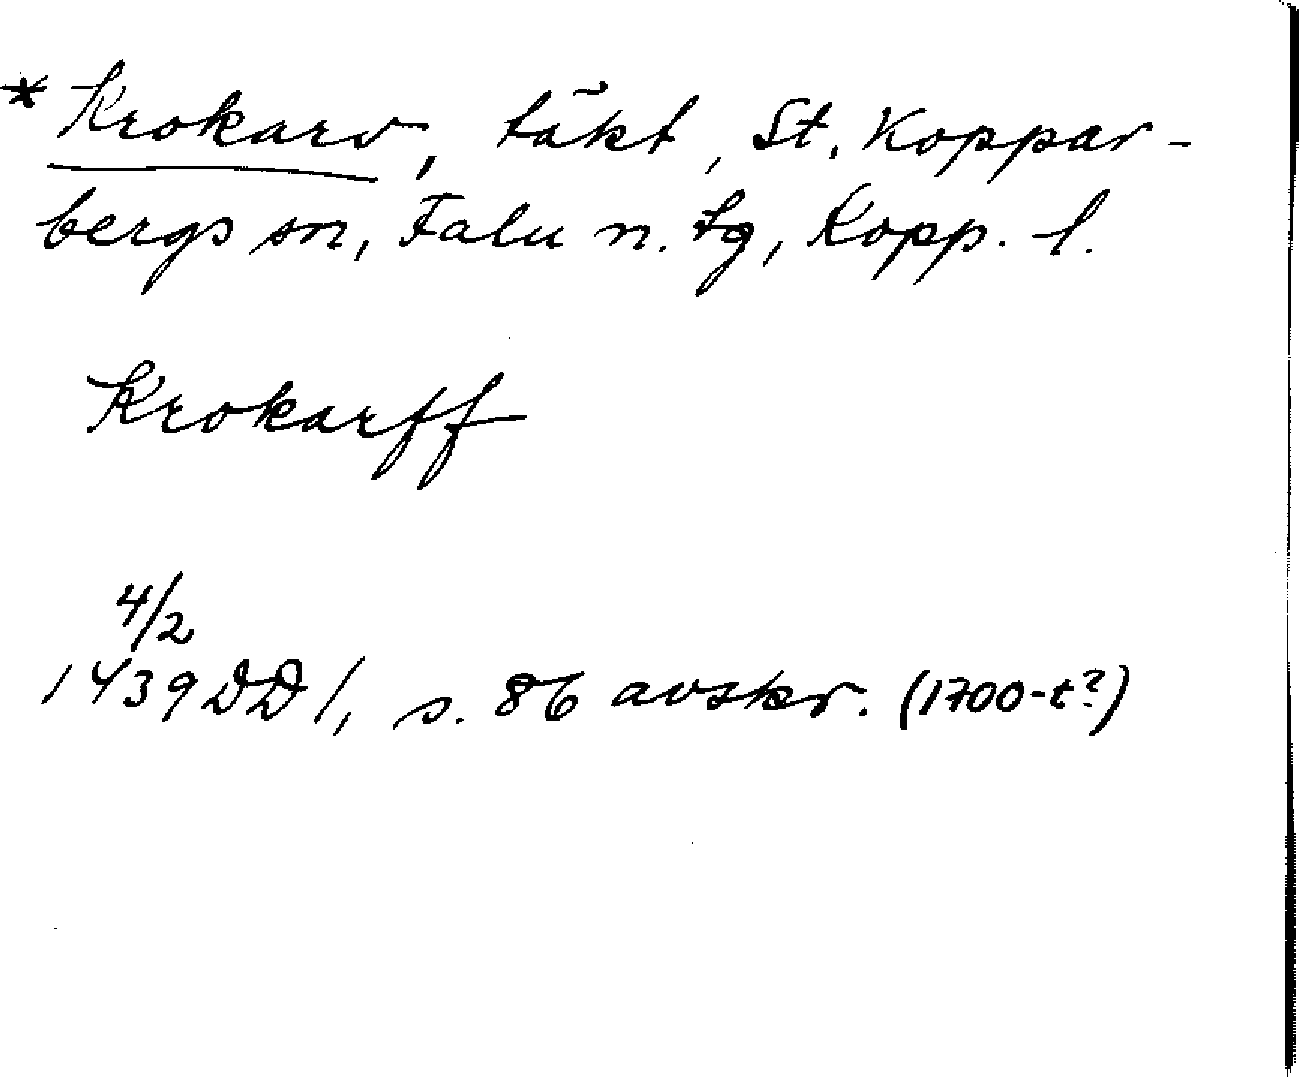 * Krokarv, täkt, St. Koppar-
bergs sn, Falu n. tg, Kopp. l.
Krokarff
4/2
1439 DD 1, s. 86 avskr. (1700-t?)